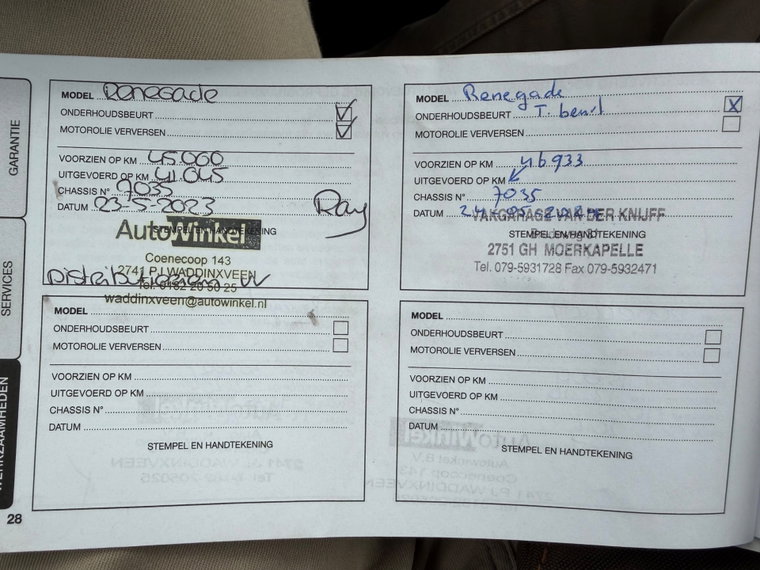 GARANTIE
SERVICES
WERKZAAMHEDEN
MODEL Renegade
ONDERHOUDSBEURT
MOTOROLIE VERVERSEN
VOORZIEN OP KM 45.000
UITGEVOERD OP KM 41.045
CHASSIS N° 7035
DATUM 23-5-2023
Ray
STEMPEL EN HANDTEKENING
AutoWinkel
Coenecoop 143
2741 PJ WADDINXVEEN
Distributieriem VV
waddinxveen@autowinkel.nl
MODEL Renegade
ONDERHOUDSBEURT T. beurt
MOTOROLIE VERVERSEN
VOORZIEN OP KM 46933
UITGEVOERD OP KM
CHASSIS N° 7035
DATUM
VAKGARAGE VAN DER KNIJFF
STEMPEL EN HANDTEKENING
2751 GH MOERKAPELLE
Tel. 079-5931728 Fax 079-5932471
MODEL
ONDERHOUDSBEURT
MOTOROLIE VERVERSEN
VOORZIEN OP KM
UITGEVOERD OP KM
CHASSIS N°
DATUM
STEMPEL EN HANDTEKENING
MODEL
ONDERHOUDSBEURT
MOTOROLIE VERVERSEN
VOORZIEN OP KM
UITGEVOERD OP KM
CHASSIS N°
DATUM
STEMPEL EN HANDTEKENING
28